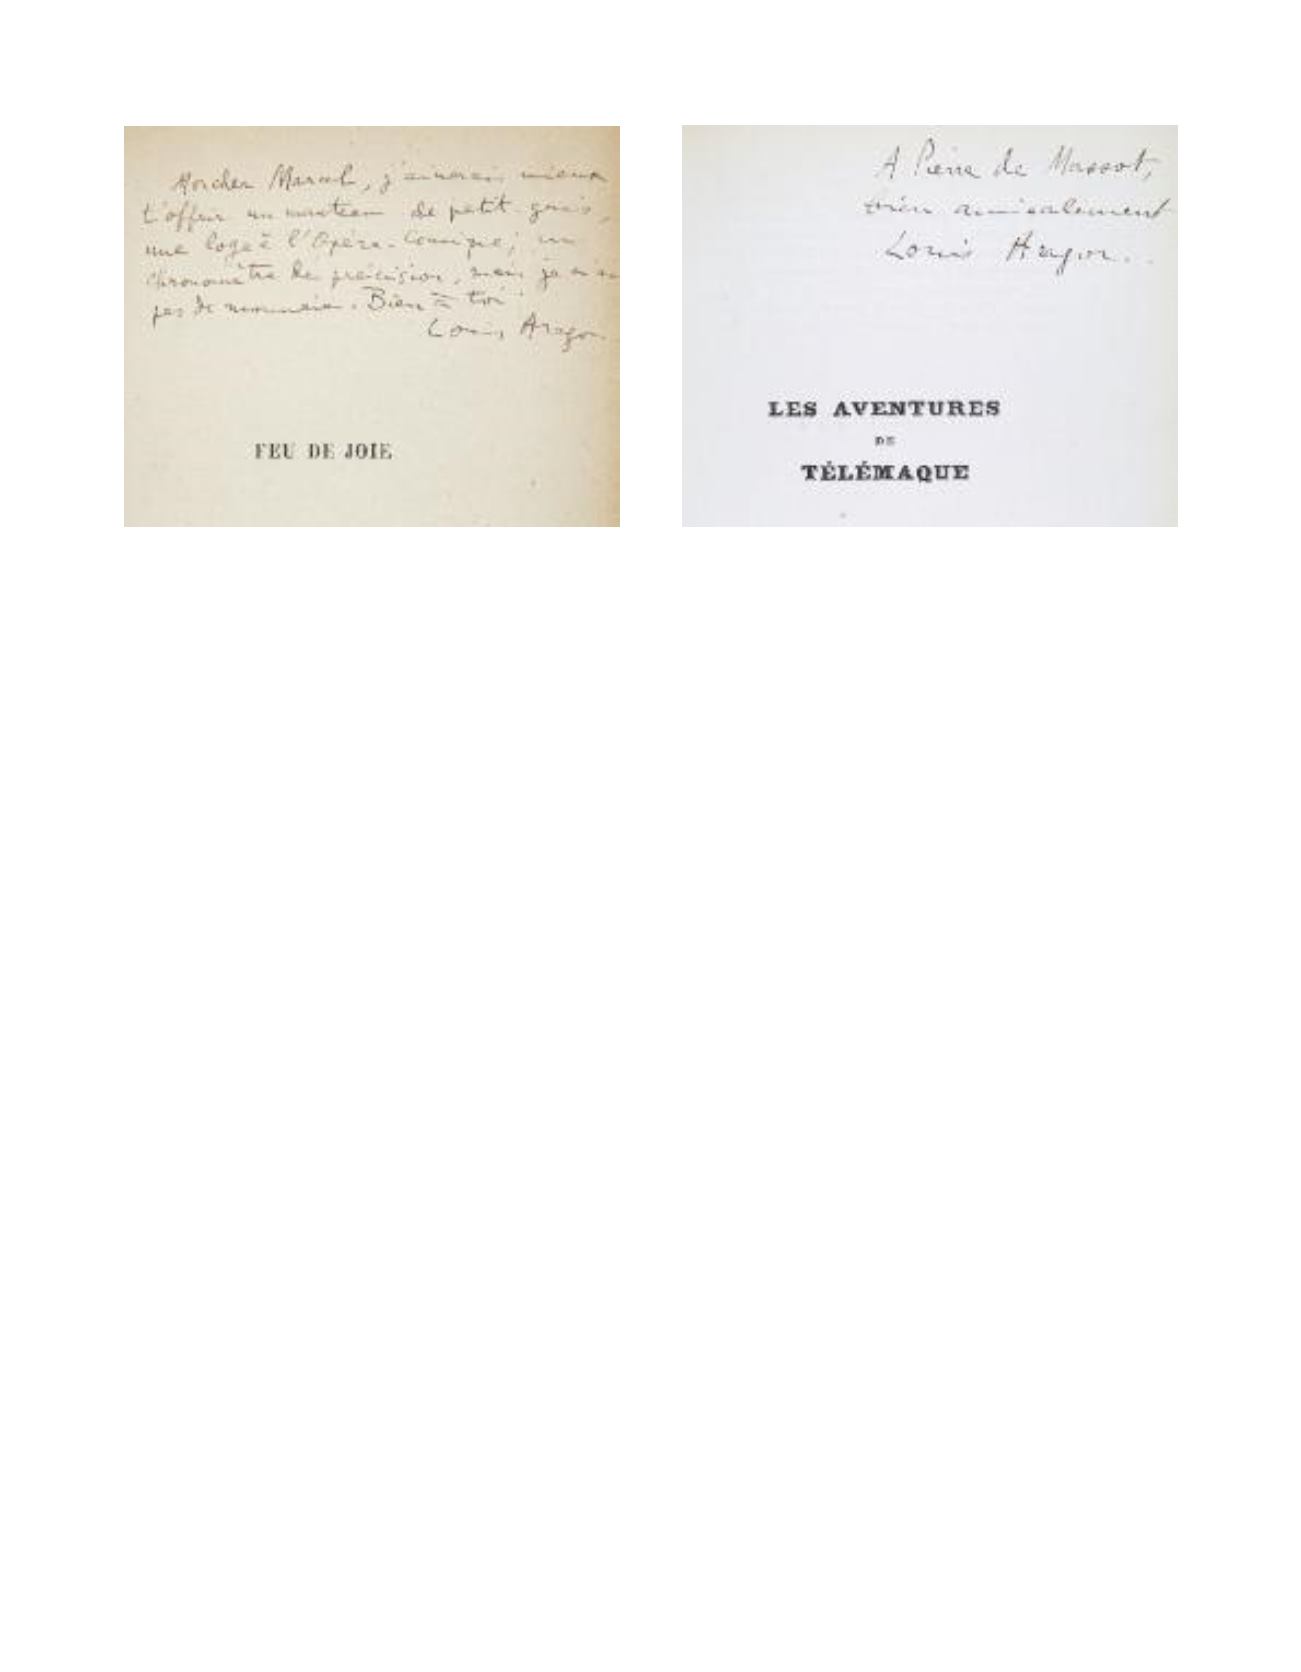 Mon cher Marcel, j'aimerais mieux
t'offrir un manteau de petit-gris,
une loge à l'Opéra-Comique, un
chronomètre de précision, mais je n'ai
pas de monnaie. Bien à toi
Louis Aragon
FEU DE JOIE
A Pierre de Massot,
bien amicalement
Louis Aragon.
LES AVENTURES
DE
TÉLÉMAQUE